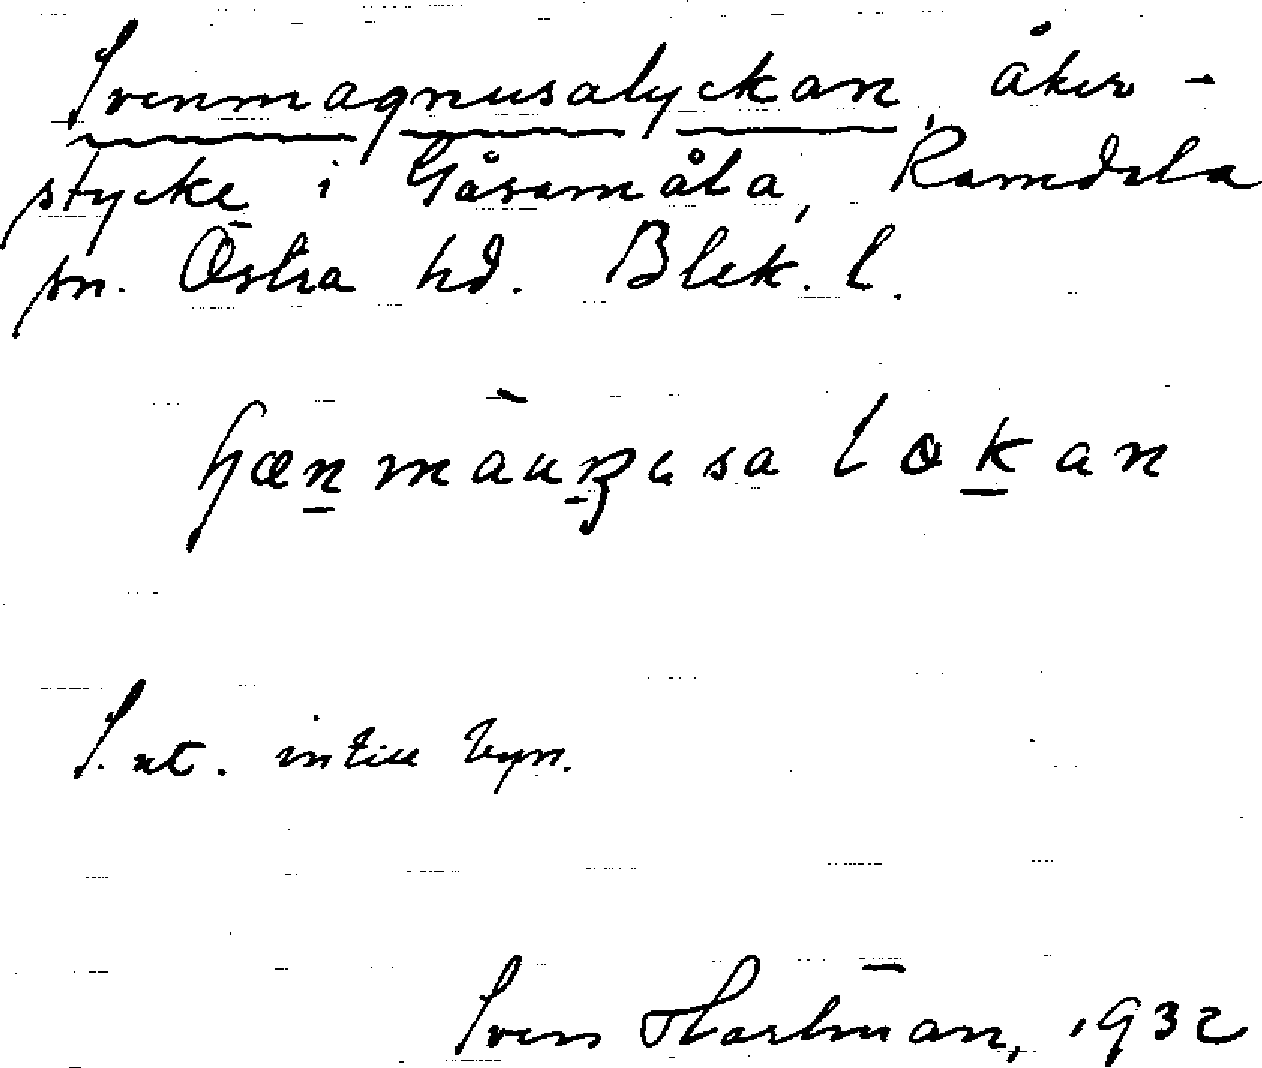 Svenmagnusalyckan, åker-
stycke i Gåsamåla, Ramdala
sn. Östra hd. Blek. l.
S. nt. intill byn.
Sven Hartman, 1932